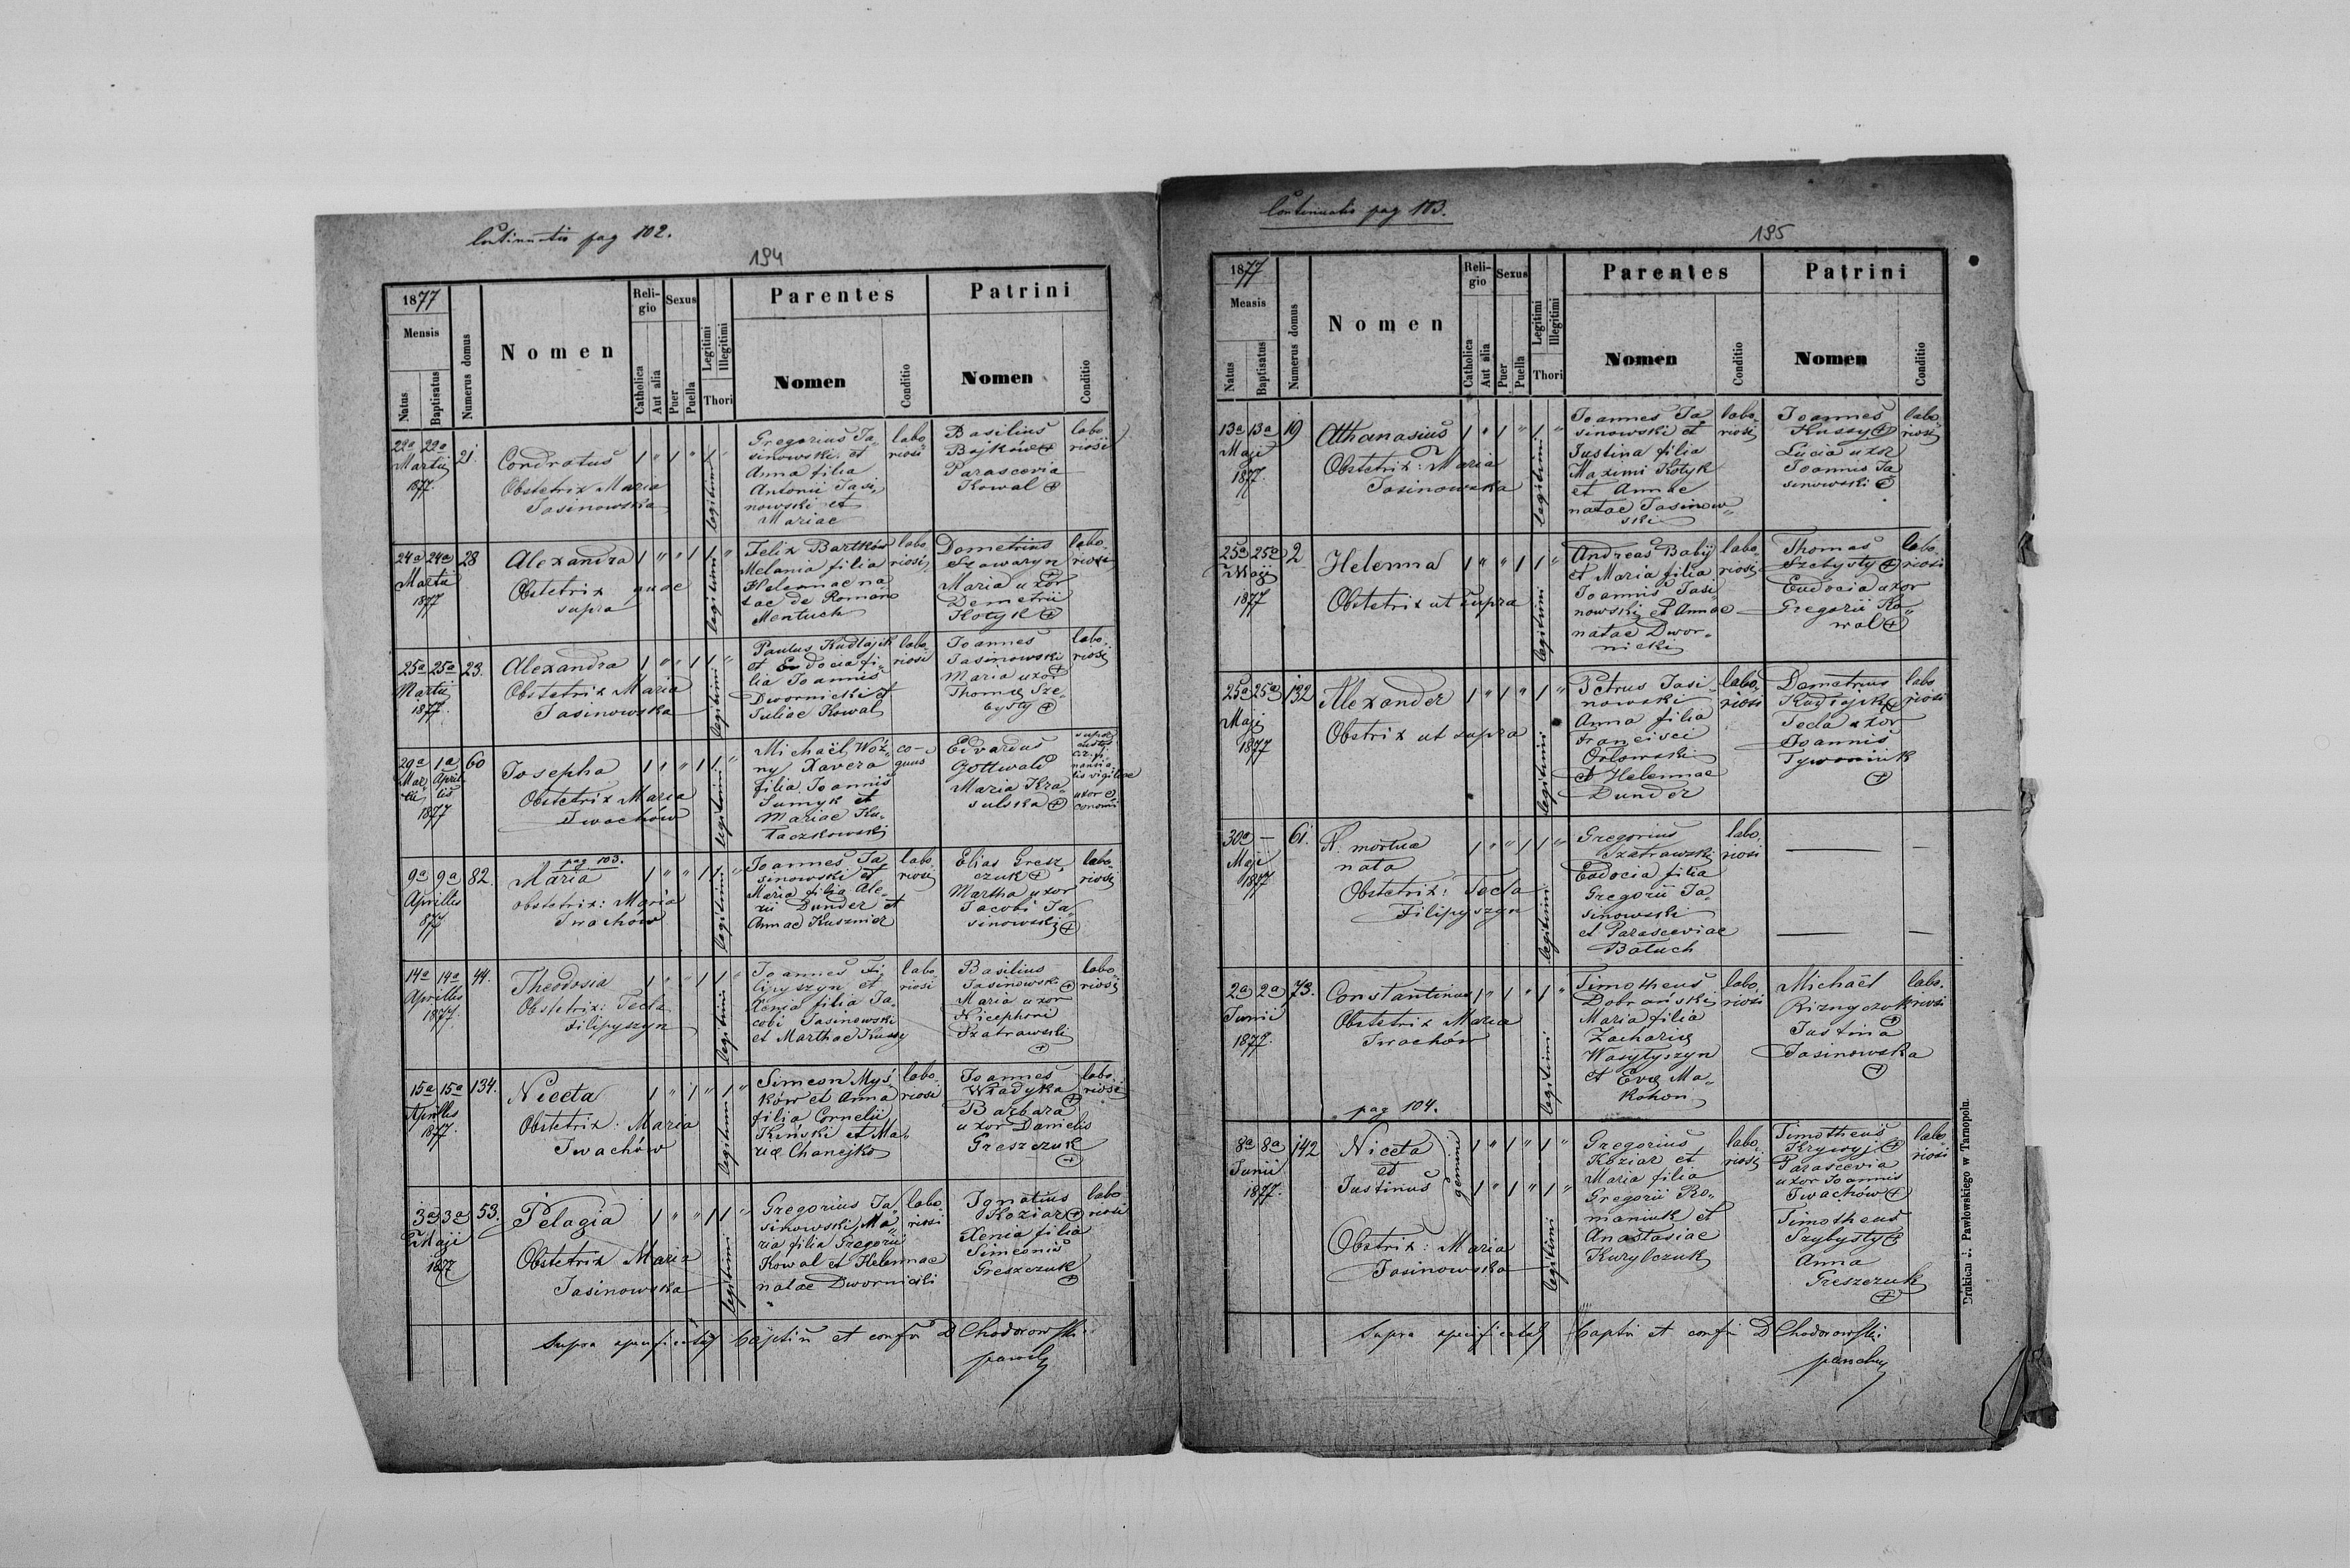 Continuatio pag 102.
194
1877
Mensis
Natus
Baptisatus
Numerus domus
Nomen
Reli-
gio
Catholica
Aut alia
Sexus
Puer
Puella
Legitimi
Illegitimi
Thori
Parentes
Nomen
Conditio
Patrini
Nomen
Conditio
22a 22a 21.
Martii
1877.
Condratus
Obstetrix Maria
Jasinowska
legitimi
Gregorius Ja„
sinowski et
Anna filia
Antonii Jasi„
nowski et
Mariae
labo„
riosi
Basilius
Bojków
Parascevia
Kowal
labo„
riosi
24a 24a 28
Martii
1877
Alexandra
Obstetrix quae
supra
legitimi
Felix Bartków
Melania filia
Helennae na
tae de Romano
Mentuch
labo„
riosi
Demetrius
Szawaryn
Maria uxor
Demetrii
Kotyk
labo„
riosi
25a 25a 23.
Martii
1877.
Alexandra
Obstetrix Maria
Jasinowska
legitimi
Paulus Kudlajik
et Eudocia fi„
lia Joannis
Dwornicki et
Juliae Kowal
labo„
riosi
Joannes
Jasinowski
Maria uxor
Thomae Sze„
bysty
labo„
riosi
29a 1a 60
Mar„ Apri
tii lis
1877
Josepha
Obstetrix Maria
Iwachów
legitimi
Michaël Woź„
ny Xavera
filia Joannis
Sumyk et
Mariae Ku„
taczkowski
co–
quus
Edvardus
Gottwald
Maria Kra„
sulska
uxor oe
conomi
pag 103.
9a 9a 82.
Aprilles
877
Maria
obstetrix: Maria
Iwachów
legitimi
Joannes Ja„
sinowski et
Maria filia Ale„
xii Dunder et
Annae Kuszner
labo„
riosi
Elias Gresz„
czuk
Martha uxor
Jacobi Ja„
sinowski
labo„
riosi
14a 14a 44.
Aprilles
1877.
Theodosia
Obstetrix: Tecla
Filipyszyn
legitimi
Joannes Fi„
lipyszyn et
Xenia filia Ja„
cobi Jasinowski
et Marthae Kussy
labo„
riosi
Basilius
Jasinowski
Maria uxor
Nicephori
Szatrawski
labo„
riosi
15a 15a 134.
Aprilles
1877.
Niceta
Obstetrix: Maria
Iwachów
legitimi
Simeon Myś„
ków et Anna
filia Cornelii
Kiński et Ma„
riae Chanejko
labo„
riosi
Joannes
Władyka
Barbara
uxor Danielis
Greszczuk
labo„
riosi
3a 3a 53.
Maji
1877
Pelagia
Obstetrix Maria
Jasinowska
legitimi
Gregorius Ja„
sinowski, Ma„
ria filia Gregorii
Kowal et Helennae
natae Dwornicki
labo„
riosi
Ignatius
Koziar
Xenia filia
Simeonis
Greszczuk
labo„
riosi
Supra specificatos baptisi et confir D Chodorowski
paroch
Continuatio pag 103.
195
1877
Mensis
Natus
Baptisatus
Numerus domus
Nomen
Reli-
gio
Catholica
Aut alia
Sexus
Puer
Puella
Legitimi
Illegitimi
Thori
Parentes
Nomen
Conditio
Patrini
Nomen
Conditio
13a 13a 19
Maji
1877.
Athanasius
Obstetrix: Maria
Jasinowska
legitimi
Joannes Ja„
sinowski et
Justina filia
Maximi Kotyk
et Annae
natae Jasinow„
ski
labo„
riosi
Joannes
Kussy
Lucia uxor
Joannis Ja
sinowski
labo„
riosi
25a 25a 2
Maji
1877
Helenna
Obstetrix ut supra
legitimi
Andreas Babij
et Maria filia
Joannis Jasi„
nowski et Annae
natae Dwor„
nicki
labo„
riosi
Thomas
Szebysty
Eudocia uxor
Gregorii Ko„
wal
labo„
riosi
25a 25a 132
Maji
1877
Alexander
Obstrix ut supra
legitimi
Petrus Jasi„
nowski
Anna filia
Francisci
Orłowski
et Helennae
Dunder
labo„
riosi
Demetrius
Kudlajik
Tecla uxor
Joannis
Tywoniuk
labo„
riosi
30a — 61.
Maji
1877
N. mortua
nata
Obstetrix: Tecla
Filipyszyn
legitimi
Gregorius
Szatrawski
Eudocia filia
Gregorii Ja„
sinowski
et Parasceviae
Batuch
labo„
riosi
2a 2a 73.
Junii
1877.
Constantinus
Obstetrix Maria
Iwachów
legitimi
Timotheus
Dobrański
Maria filia
Zachariae
Wasylyszyn
et Evae Ma„
kohon
labo„
riosi
Michaël
Riznyczuk
Justina
Jasinowska
labo„
riosi
pag 104.
8a 8a 142
Junii
1877.
Niceta
et
Justinus
gemini
Obstrix: Maria
Jasinowska
legitimi
Gregorius
Koziar et
Maria filia
Gregorii Ro„
maniuk et
Anastasiae
Kurylczuk
labo„
riosi
Timotheus
Krywyj
Parascevia
uxor Joannis
Iwachów
Timotheus
Szybysty
Anna
Greszczuk
labo„
riosi
Supra specificatos baptisi et confir D Chodorowski
paroch
Drukiem J. Pawłowskiego w Tarnopolu.